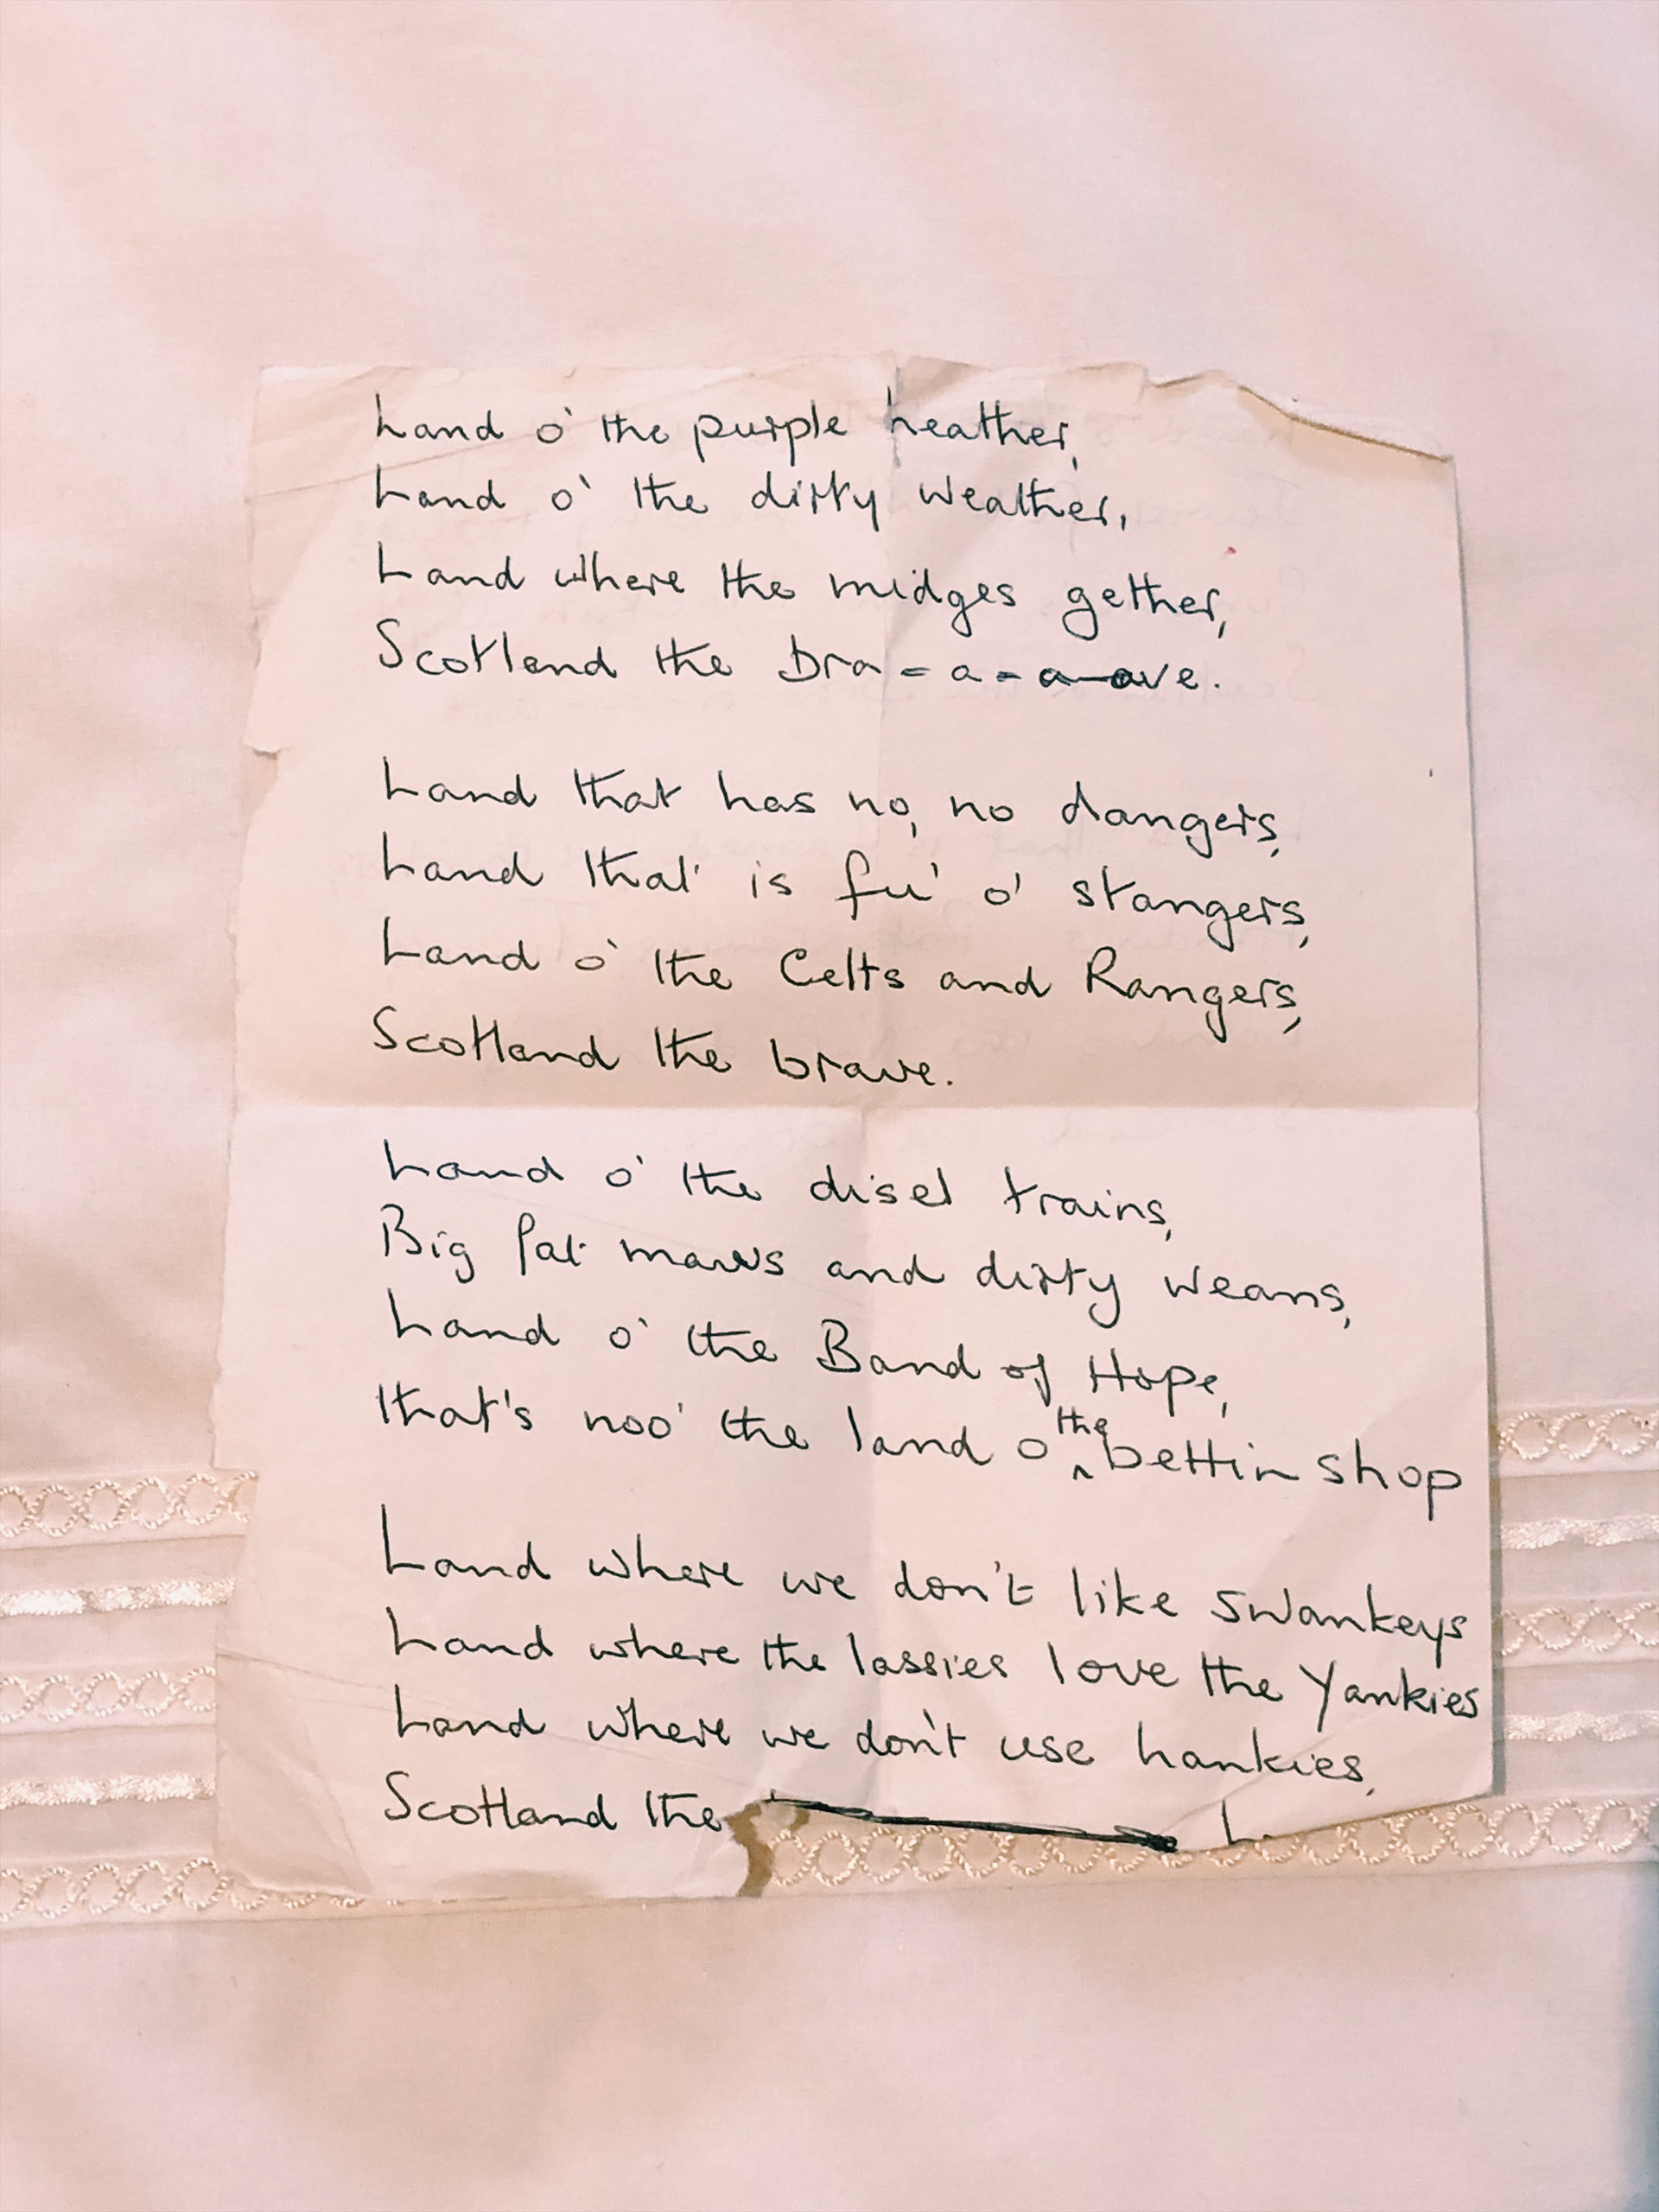 Land o' the purple heather,
Land o' the dirty weather,
Land where the midges gether,
Scotland the bra-a-a-ave.
Land that has no, no dangers,
Land that is fu' o' stangers,
Land o' the Celts and Rangers,
Scotland the brave.
Land o' the disel trains,
Big fat maws and dirty weans,
Land o' the Band of Hope,
that's noo' the land o the bettin shop
Land where we don't like swankeys
Land where the lassies love the Yankies
Land where we don't use hankies,
Scotland the